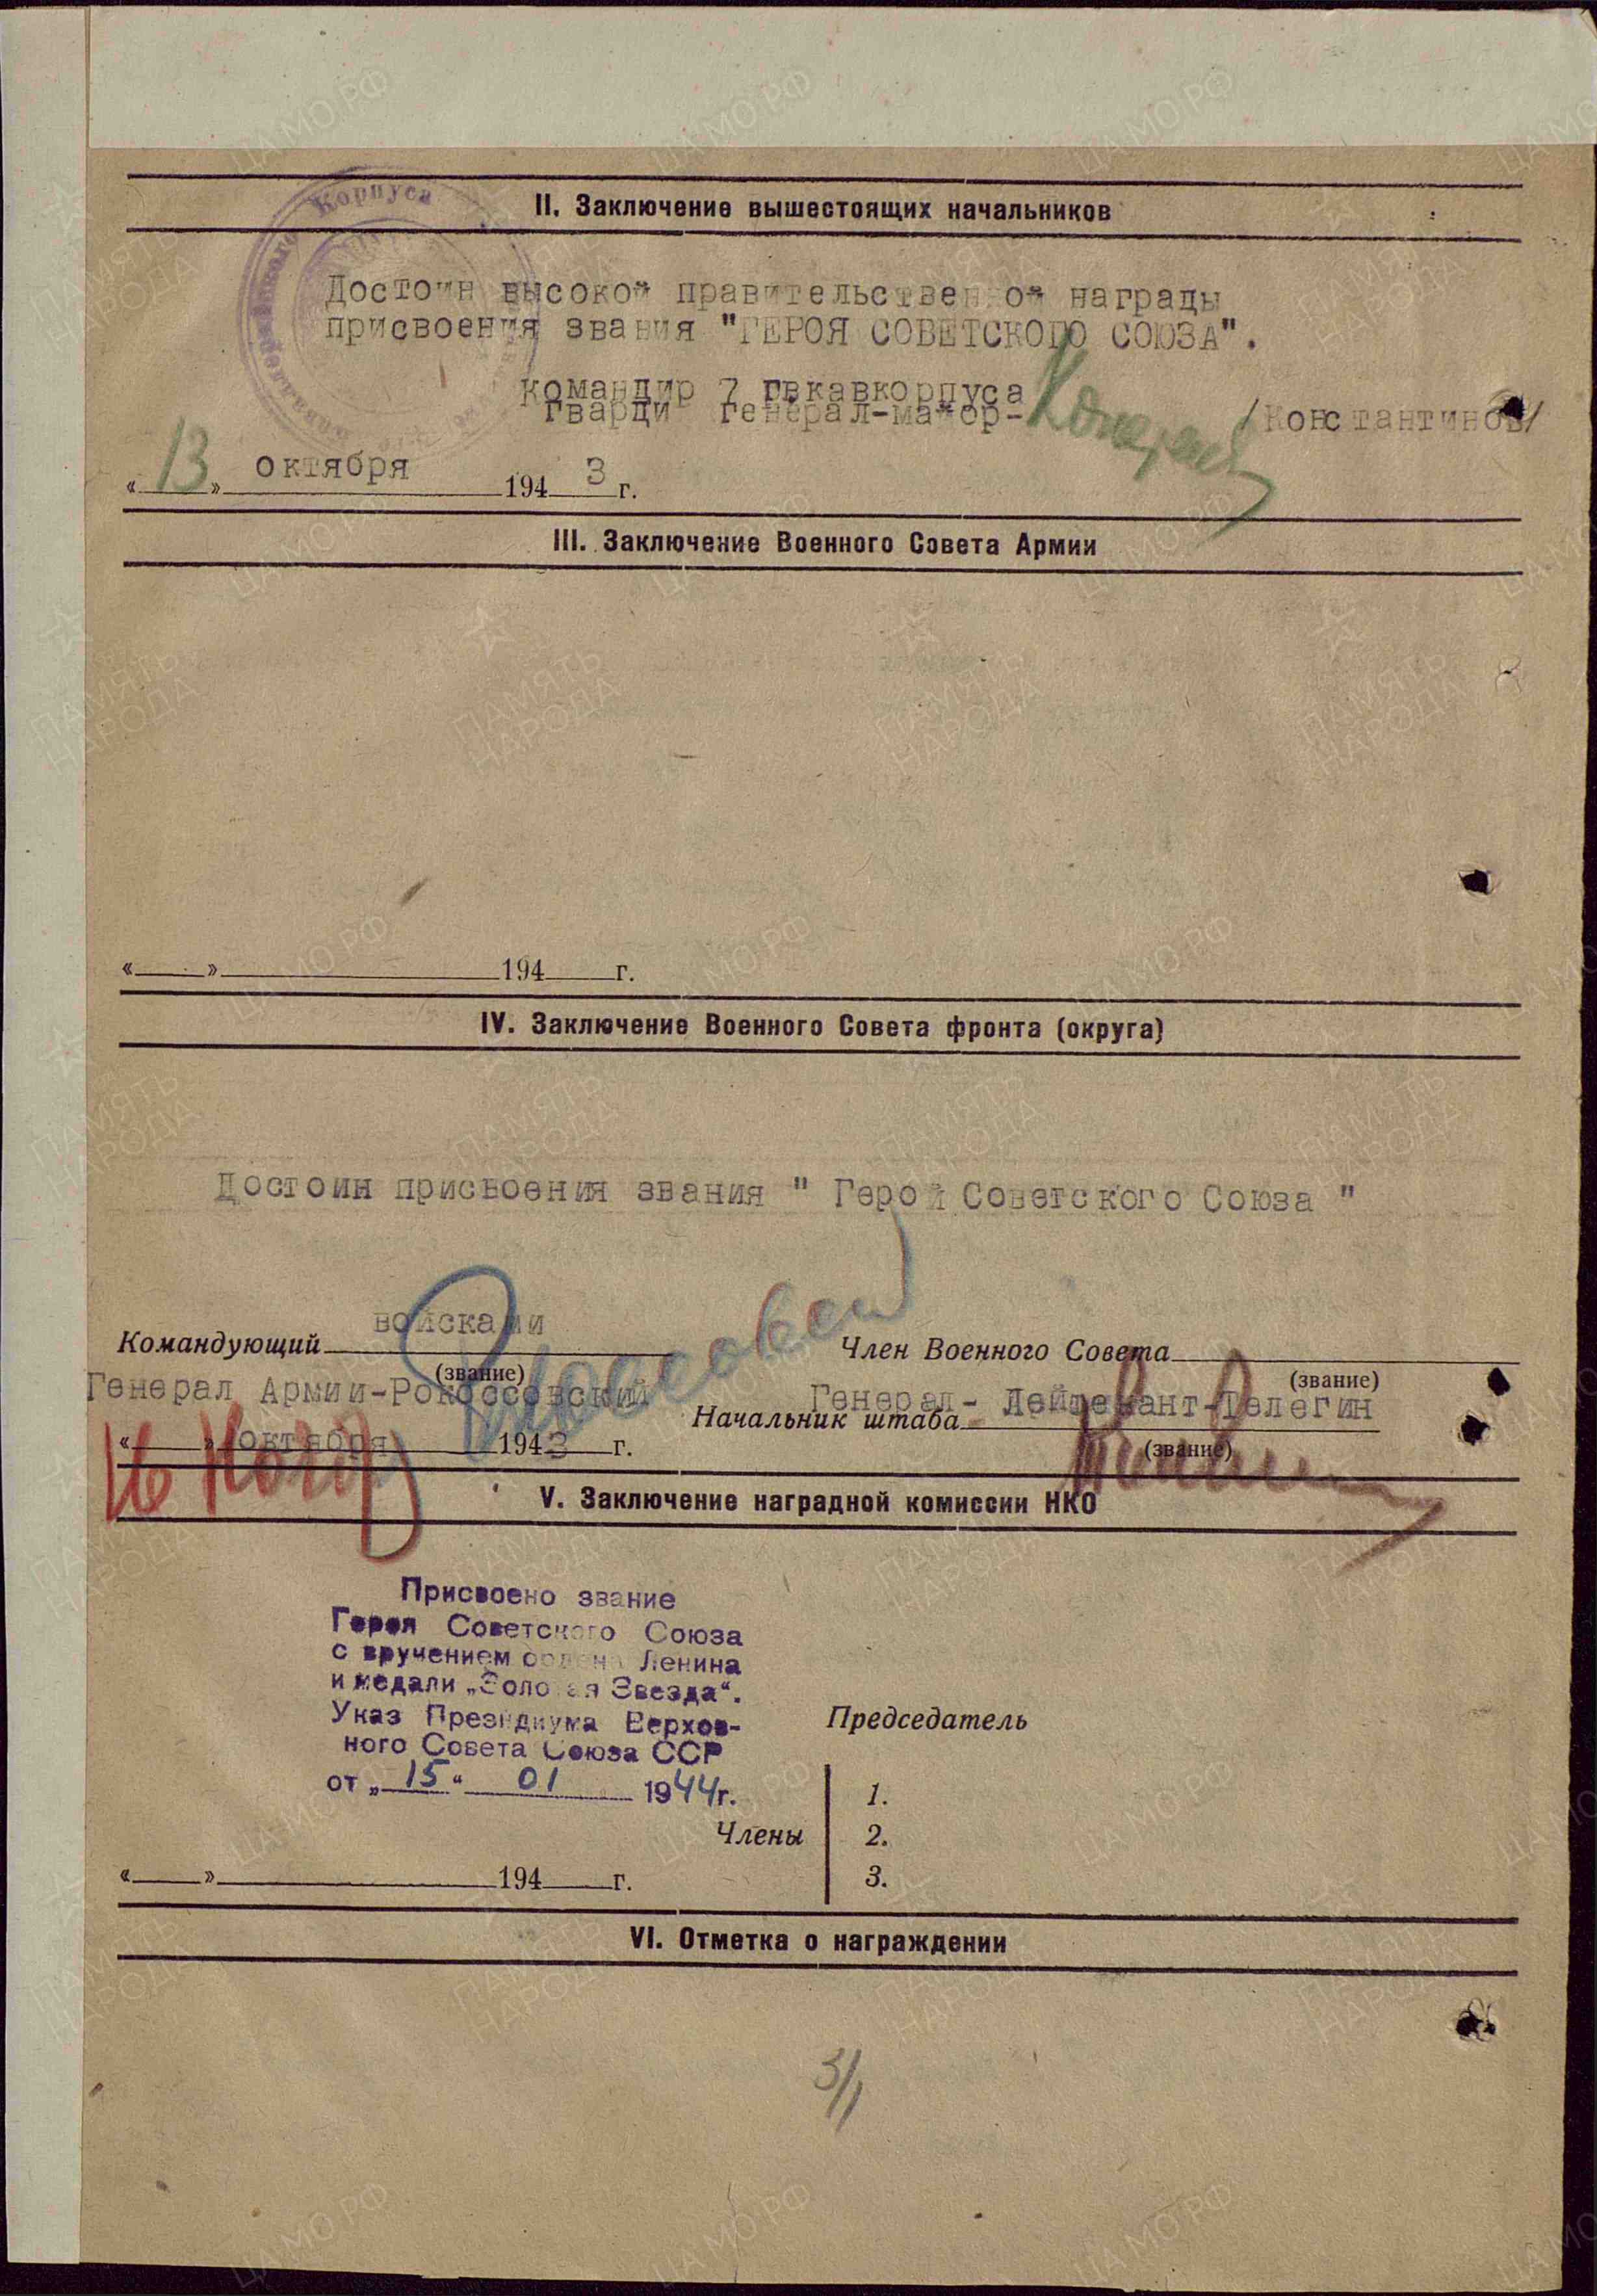 Корпуса
II. Заключение вышестоящих начальников
Достоин высокой правительственной награды
присвоения звания "ГЕРОЯ СОВЕТСКОГО СОЮЗА".
командир 7 гвкавкорпуса
гварди генерал-майор- /Константинов/
«13» октября 1943 г.
III. Заключение Военного Совета Армии
«   » 194 г.
IV. Заключение Военного Совета фронта (округа)
Достоин присвоения звания " Герой Советского Союза "
Командующий войсками
(звание)
Генерал Армии-Рокоссовский
Член Военного Совета
(звание)
Генерал- Лейтенант-Телегин
Начальник штаба
(звание)
«   » октября 1943 г.
V. Заключение наградной комиссии НКО
Присвоено звание
Героя Советского Союза
с вручением ордена Ленина
и медали „Золотая Звезда".
Указ Президиума Верхов-
ного Совета Союза ССР
от „15" 01 1944г.
Председатель
Члены
1.
2.
3.
«   » 194 г.
VI. Отметка о награждении
ЦА МО РФ
ПАМЯТЬ НАРОДА